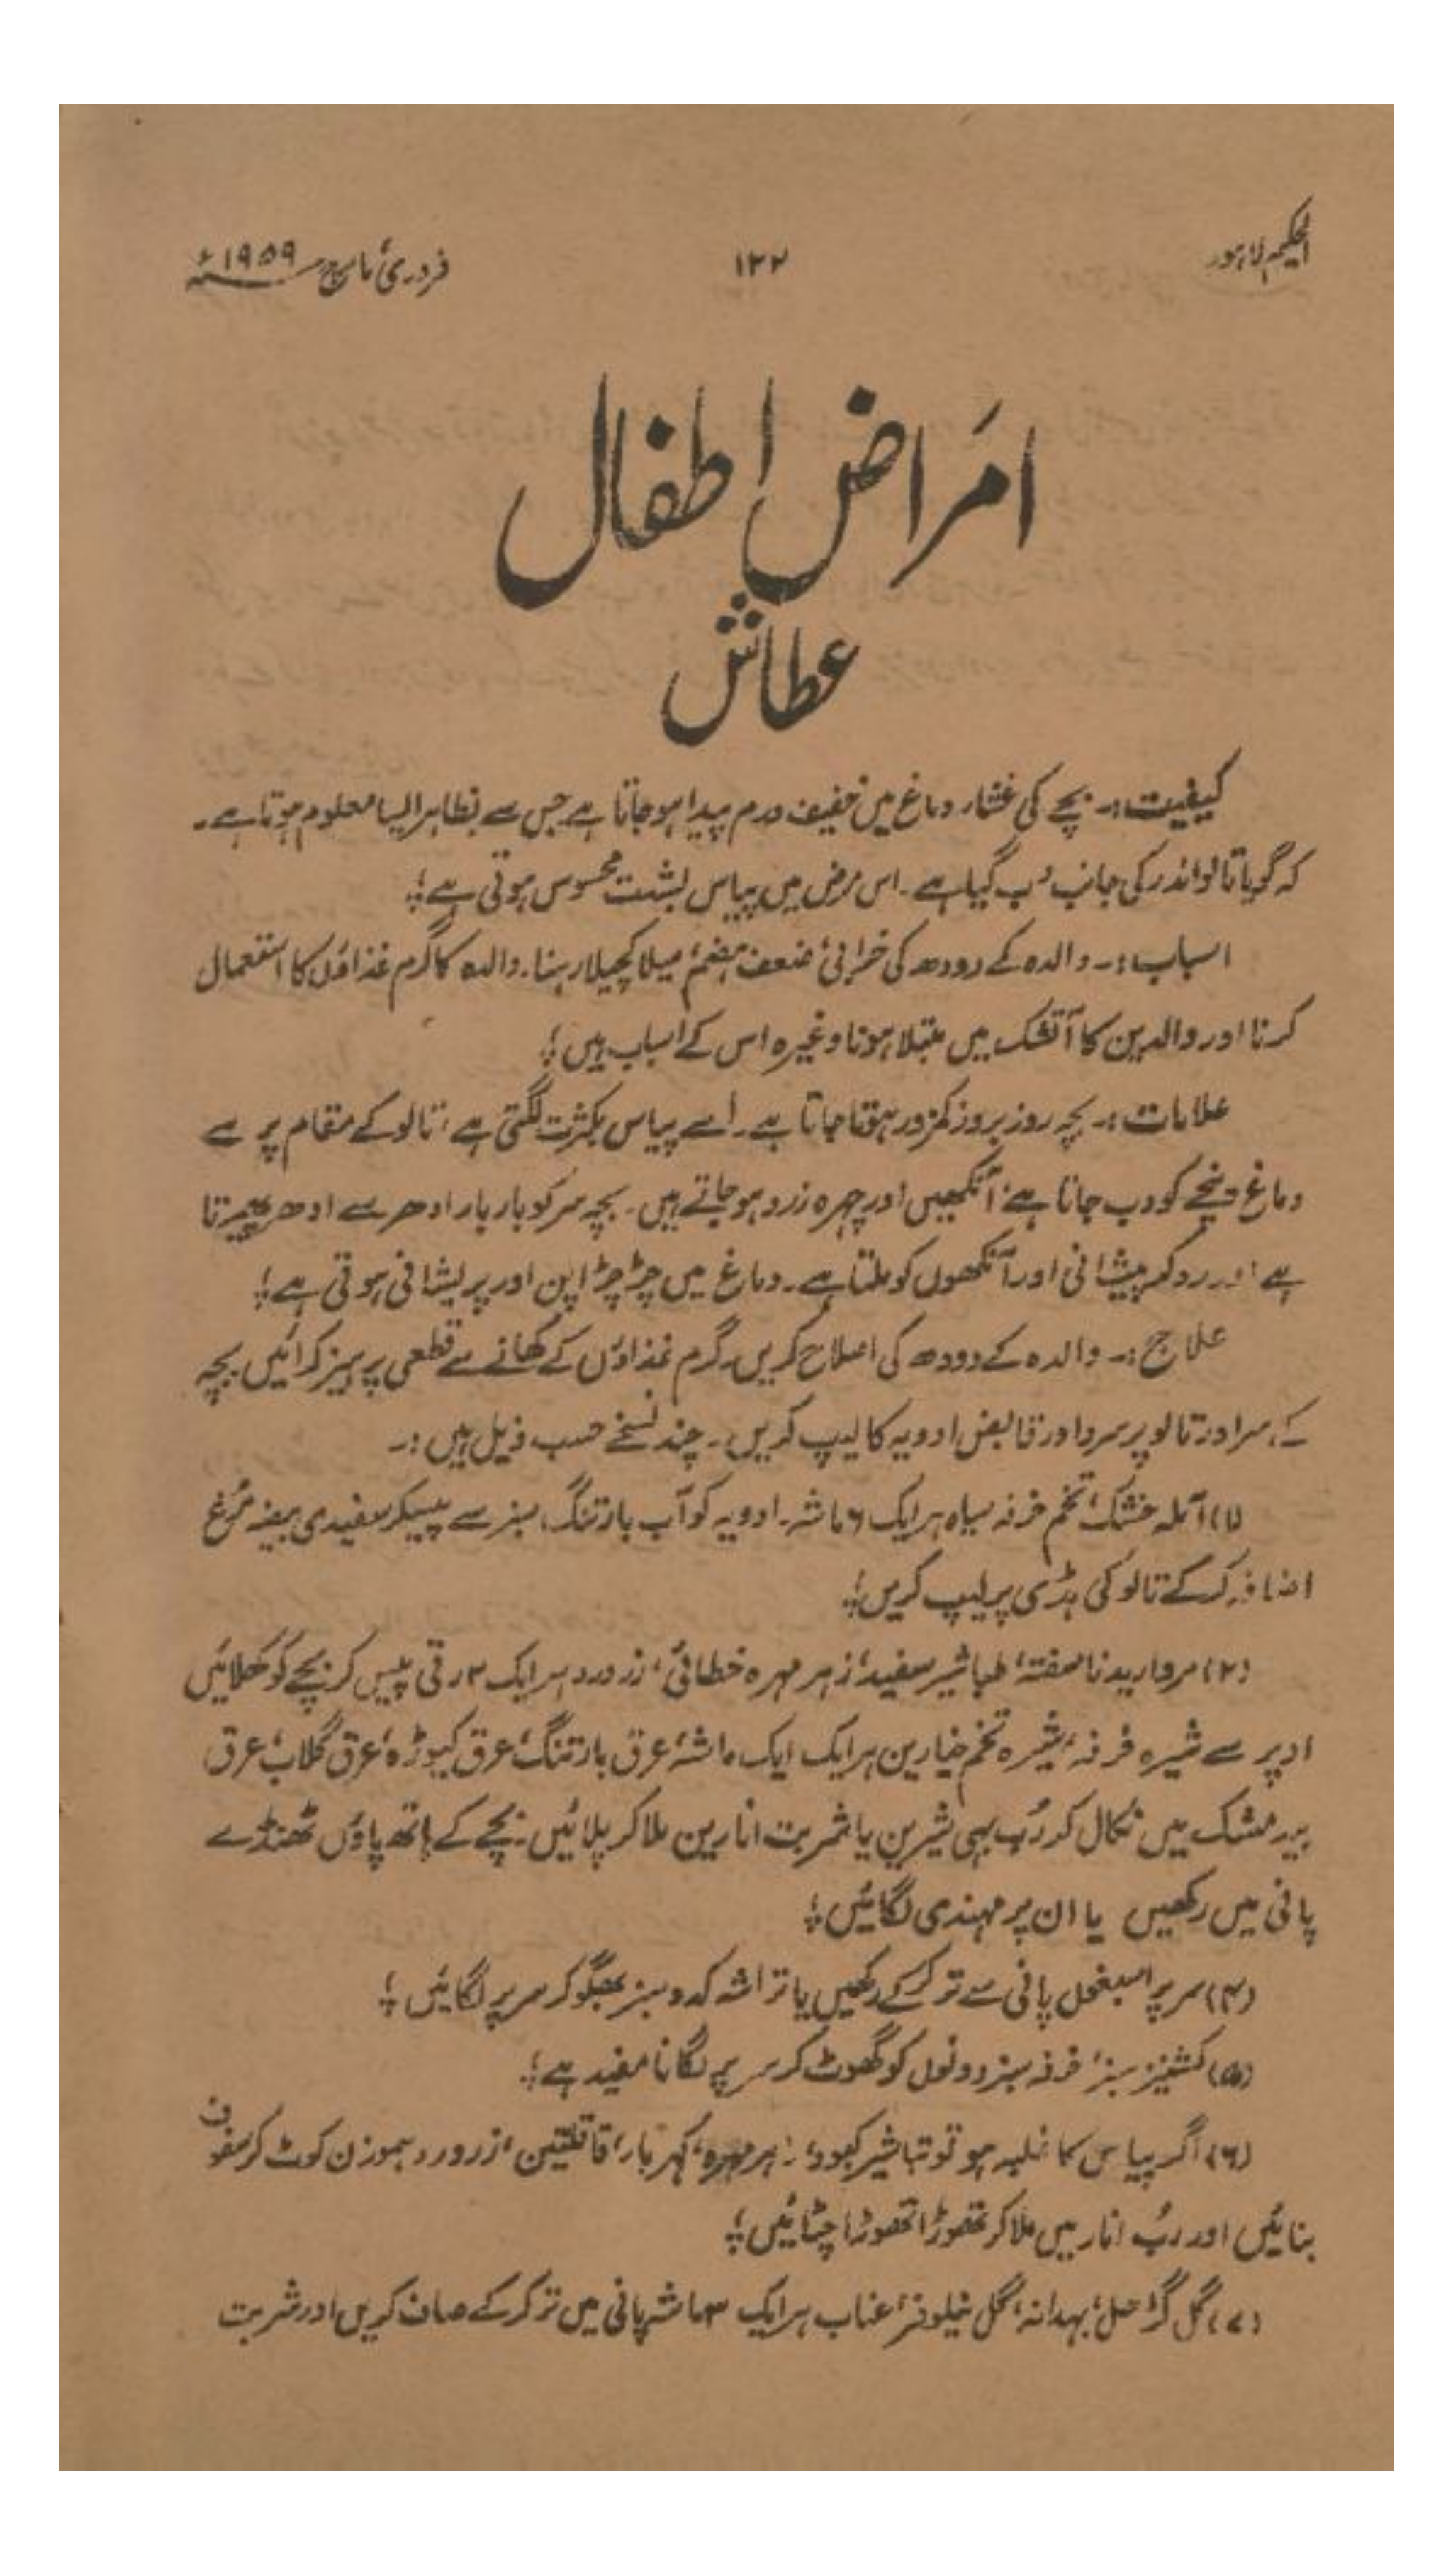 الحکیم لاہور
۱۲۲
فروری، مارچ ۱۹۵۹ء
امراض اطفال
عطاش
کیفیت:۔ بچے کی غشاء دماغ میں خفیف ورم پیدا ہو جاتا ہے جس سے بظاہر ایسا معلوم ہوتا ہے۔
کہ گویا تالو اندر کی جانب دب گیا ہے۔ اس مرض میں پیاس بشدت محسوس ہوتی ہے؛
اسباب:۔ والدہ کے دودھ کی خرابی، ضعف ہضم، میلا کچیلا رہنا۔ والدہ کا گرم غذاؤں کا استعمال
کرنا اور والدین کا آتشک میں مبتلا ہونا وغیرہ اس کے اسباب ہیں؛
علامات:۔ بچہ روز بروز کمزور ہوتا جاتا ہے۔ اُسے پیاس بکثرت لگتی ہے، تالو کے مقام پر سے
دماغ نیچے کو دب جاتا ہے، آنکھیں اور چہرہ زرد ہو جاتے ہیں۔ بچہ سر کو بار بار ادھر سے ادھر پھیرتا
ہے اور رو کر پیشانی اور آنکھوں کو ملتا ہے۔ دماغ میں چڑچڑاپن اور پریشانی ہوتی ہے؛
علاج:۔ والدہ کے دودھ کی اصلاح کریں۔ گرم غذاؤں کے کھانے سے قطعی پرہیز کرائیں۔ بچہ
کے سر اور تالو پر سرد اور قابض ادویہ کا لیپ کریں۔ چند نسخے حسب ذیل ہیں:۔
(۱) آملہ خشک، تخم خرفہ سیاہ ہر ایک ۶ ماشہ۔ ادویہ کو آب بارتنگ سبز سے پیسکر سفیدی بیضہ مرغ
اضافہ کر کے تالو کی ہڈی پر لیپ کریں؛
(۲) مروارید ناسفتہ، طباشیر سفید، زہر مہرہ خطائی، زرورد ہر ایک ۳ رتی پیس کر بچے کو کھلائیں
اوپر سے شیرہ خرفہ، شیرہ تخم خیارین ہر ایک ایک ماشہ، عرق بارتنگ، عرق کیوڑہ، عرق گلاب، عرق
بیدمشک میں نکال کر رُب بہی شیریں یا شربت انارین ملا کر پلائیں۔ بچے کے ہاتھ پاؤں ٹھنڈے
پانی میں رکھیں یا ان پر مہندی لگائیں؛
(۴) سر پر اسبغول پانی سے تر کر کے رکھیں یا تراشہ کدو سبز بھگو کر سر پر لگائیں؛
(۵) کشنیز سبز، خرفہ سبز دونوں کو گھوٹ کر سر پر لگانا مفید ہے؛
(۶) اگر پیاس کا غلبہ ہو تو تباشیر کبود، زہر مہرہ، کہربا، قاقلتین، زرورد ہموزن کوٹ کر سفوف
بنائیں اور رُب انار میں ملا کر تھوڑا تھوڑا چٹائیں؛
(۷) گل گڑھل، بہدانہ، گل نیلوفر، عناب ہر ایک ۳ ماشہ پانی میں تر کر کے صاف کریں اور شربت